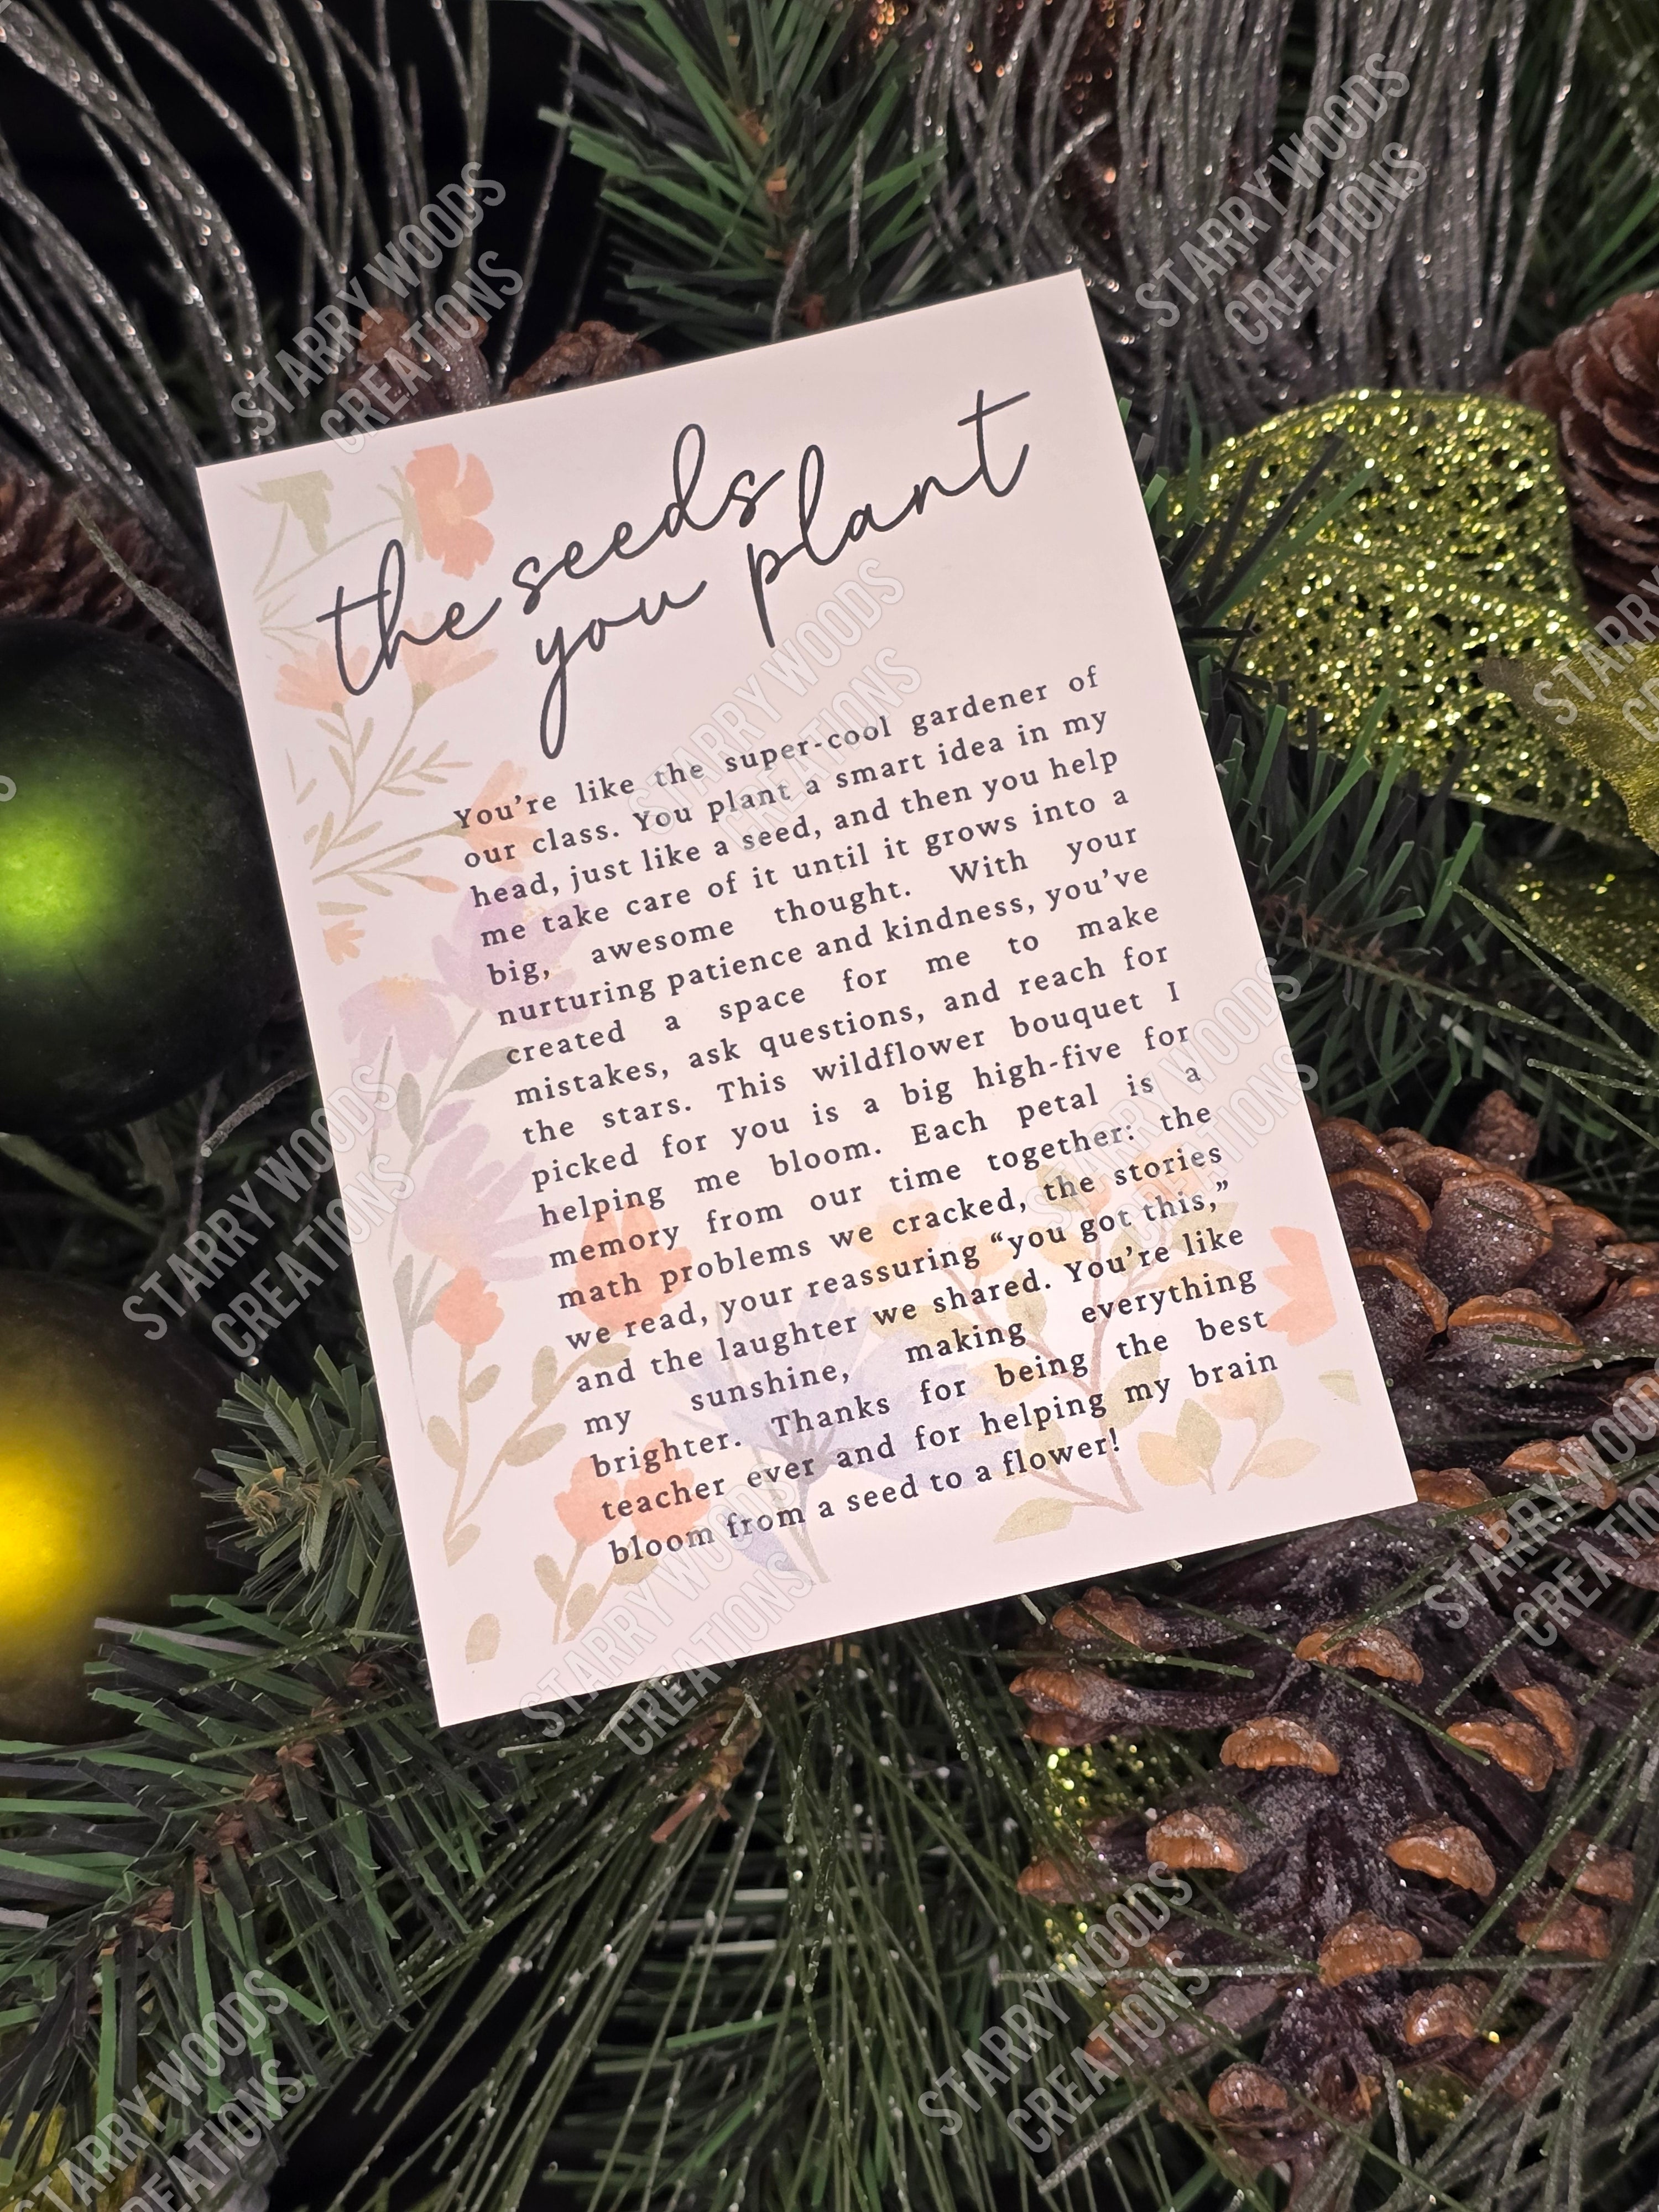 the seeds
you plant
You're like the super-cool gardener of
our class. You plant a smart idea in my
head, just like a seed, and then you help
me take care of it until it grows into a
big, awesome thought. With your
nurturing patience and kindness, you've
created a space for me to make
mistakes, ask questions, and reach for
the stars. This wildflower bouquet I
picked for you is a big high-five for
helping me bloom. Each petal is a
memory from our time together: the
math problems we cracked, the stories
we read, your reassuring “you got this,”
and the laughter we shared. You're like
my sunshine, making everything
brighter. Thanks for being the best
teacher ever and for helping my brain
bloom from a seed to a flower!
STARRY WOODS
CREATIONS
STARRY WOODS
CREATIONS
STARRY WOODS
CREATIONS
STARRY WOODS
CREATIONS
STARRY WOODS
CREATIONS
STARRY WOODS
CREATIONS
STARRY WOODS
CREATIONS
STARRY WOODS
CREATIONS
STARRY WOODS
CREATIONS